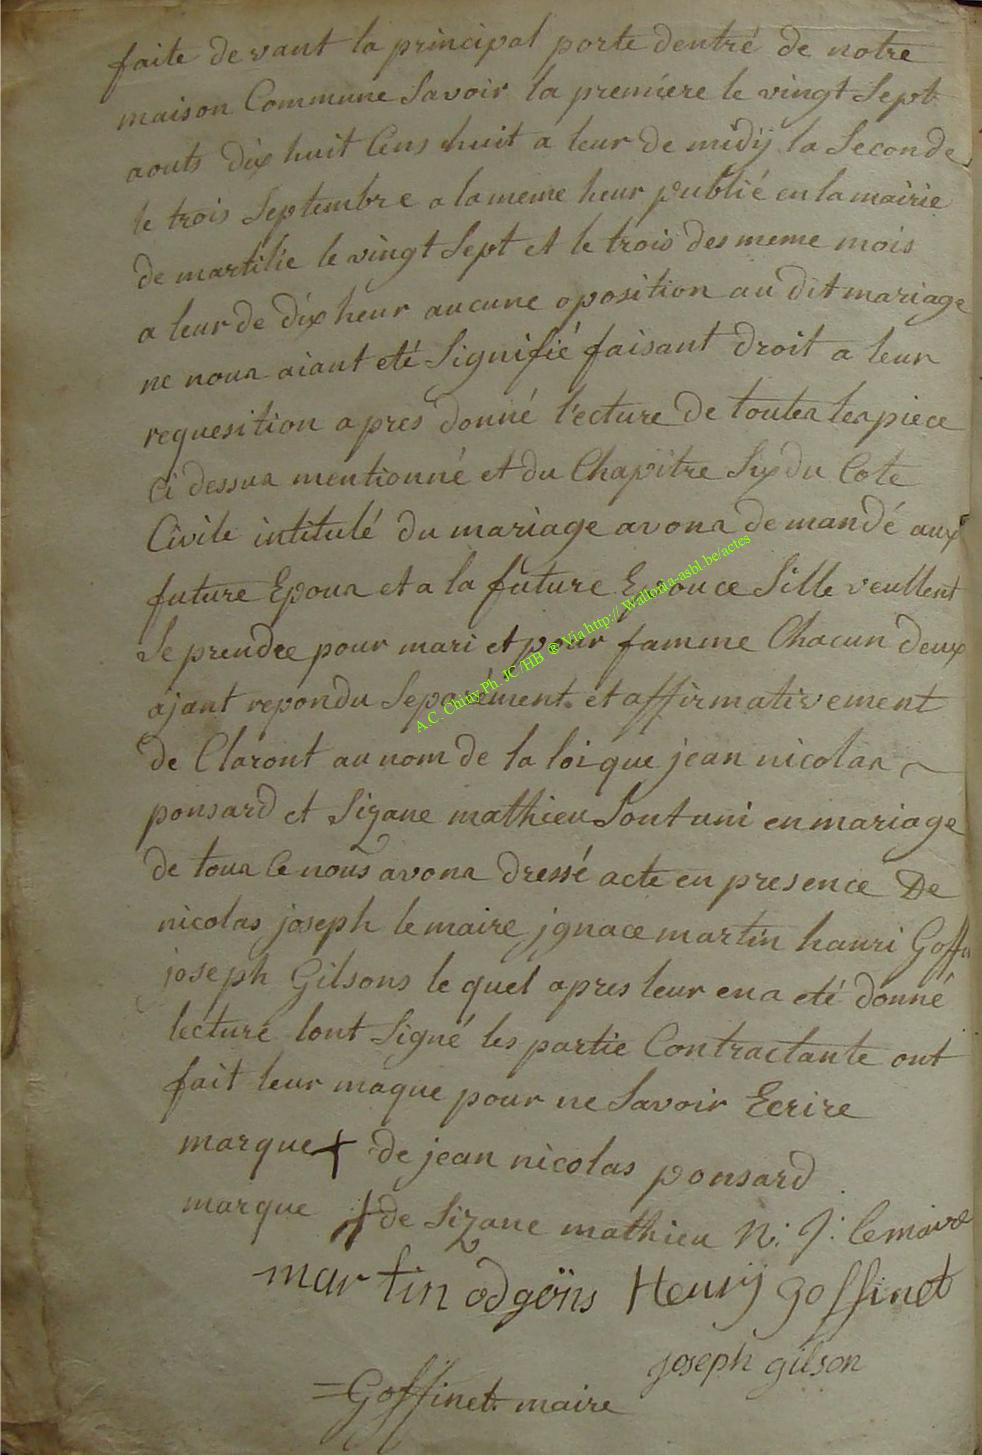 faite devant la principal porte dentré de notre
maison Commune Savoir la premiere le vingt Sept
aouts dix huit Cens huit a leur de midij la Seconde
le trois Septembre a la meme heur publié en la mairie
de martilie le vingt Sept et le trois des meme mois
a leur de dix heur aucune oposition au dit mariage
ne nous aiant eté Signifié faisant droit a leur
requesition apres donné l'ecture de toutes les piece
Ci dessus mentionné et du Chapitre Six du Cote
Civile intitulé du mariage avons demandé aux
future Epous et a la future Epouce Sille veullent
Se prendre pour mari et pour famme Chacun deux
ajant repondu Separément et affirmativement
de Claront au nom de la loi que jean nicolas
ponsard et Sizane mathieu Sont uni en mariage
de tous Ce nous avons dressé acte en presence De
nicolas joseph lemaire jgnace martin hanri Goffi
joseph Gilsons le quel apres leur en a eté donné
lecture lont Signé les partie Contractante ont
fait leur maque pour ne Savoir Ecrire
marque + de jean nicolas ponsard
marque + de Sizane mathieu N: J: lemaire
martin odgöns Henrij goffinet
joseph gilson
=Goffinet maire
A.C. Chiny Ph. JC /HB ® Via http:// Wallonia-asbl.be/actes